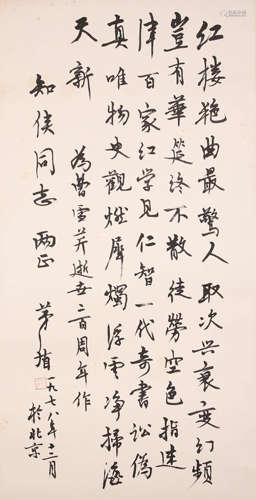 红楼艳曲最驚人取次兴衰变幻频
豈有華筵终不散徒勞空色指迷
津百家红学見仁智一代奇書訟偽
真唯物史觀燃犀燭浮雲净掃海
天新
為曹雪芹逝世二百周年作
知侠同志两正
茅盾
一九七八年十二月
於北京